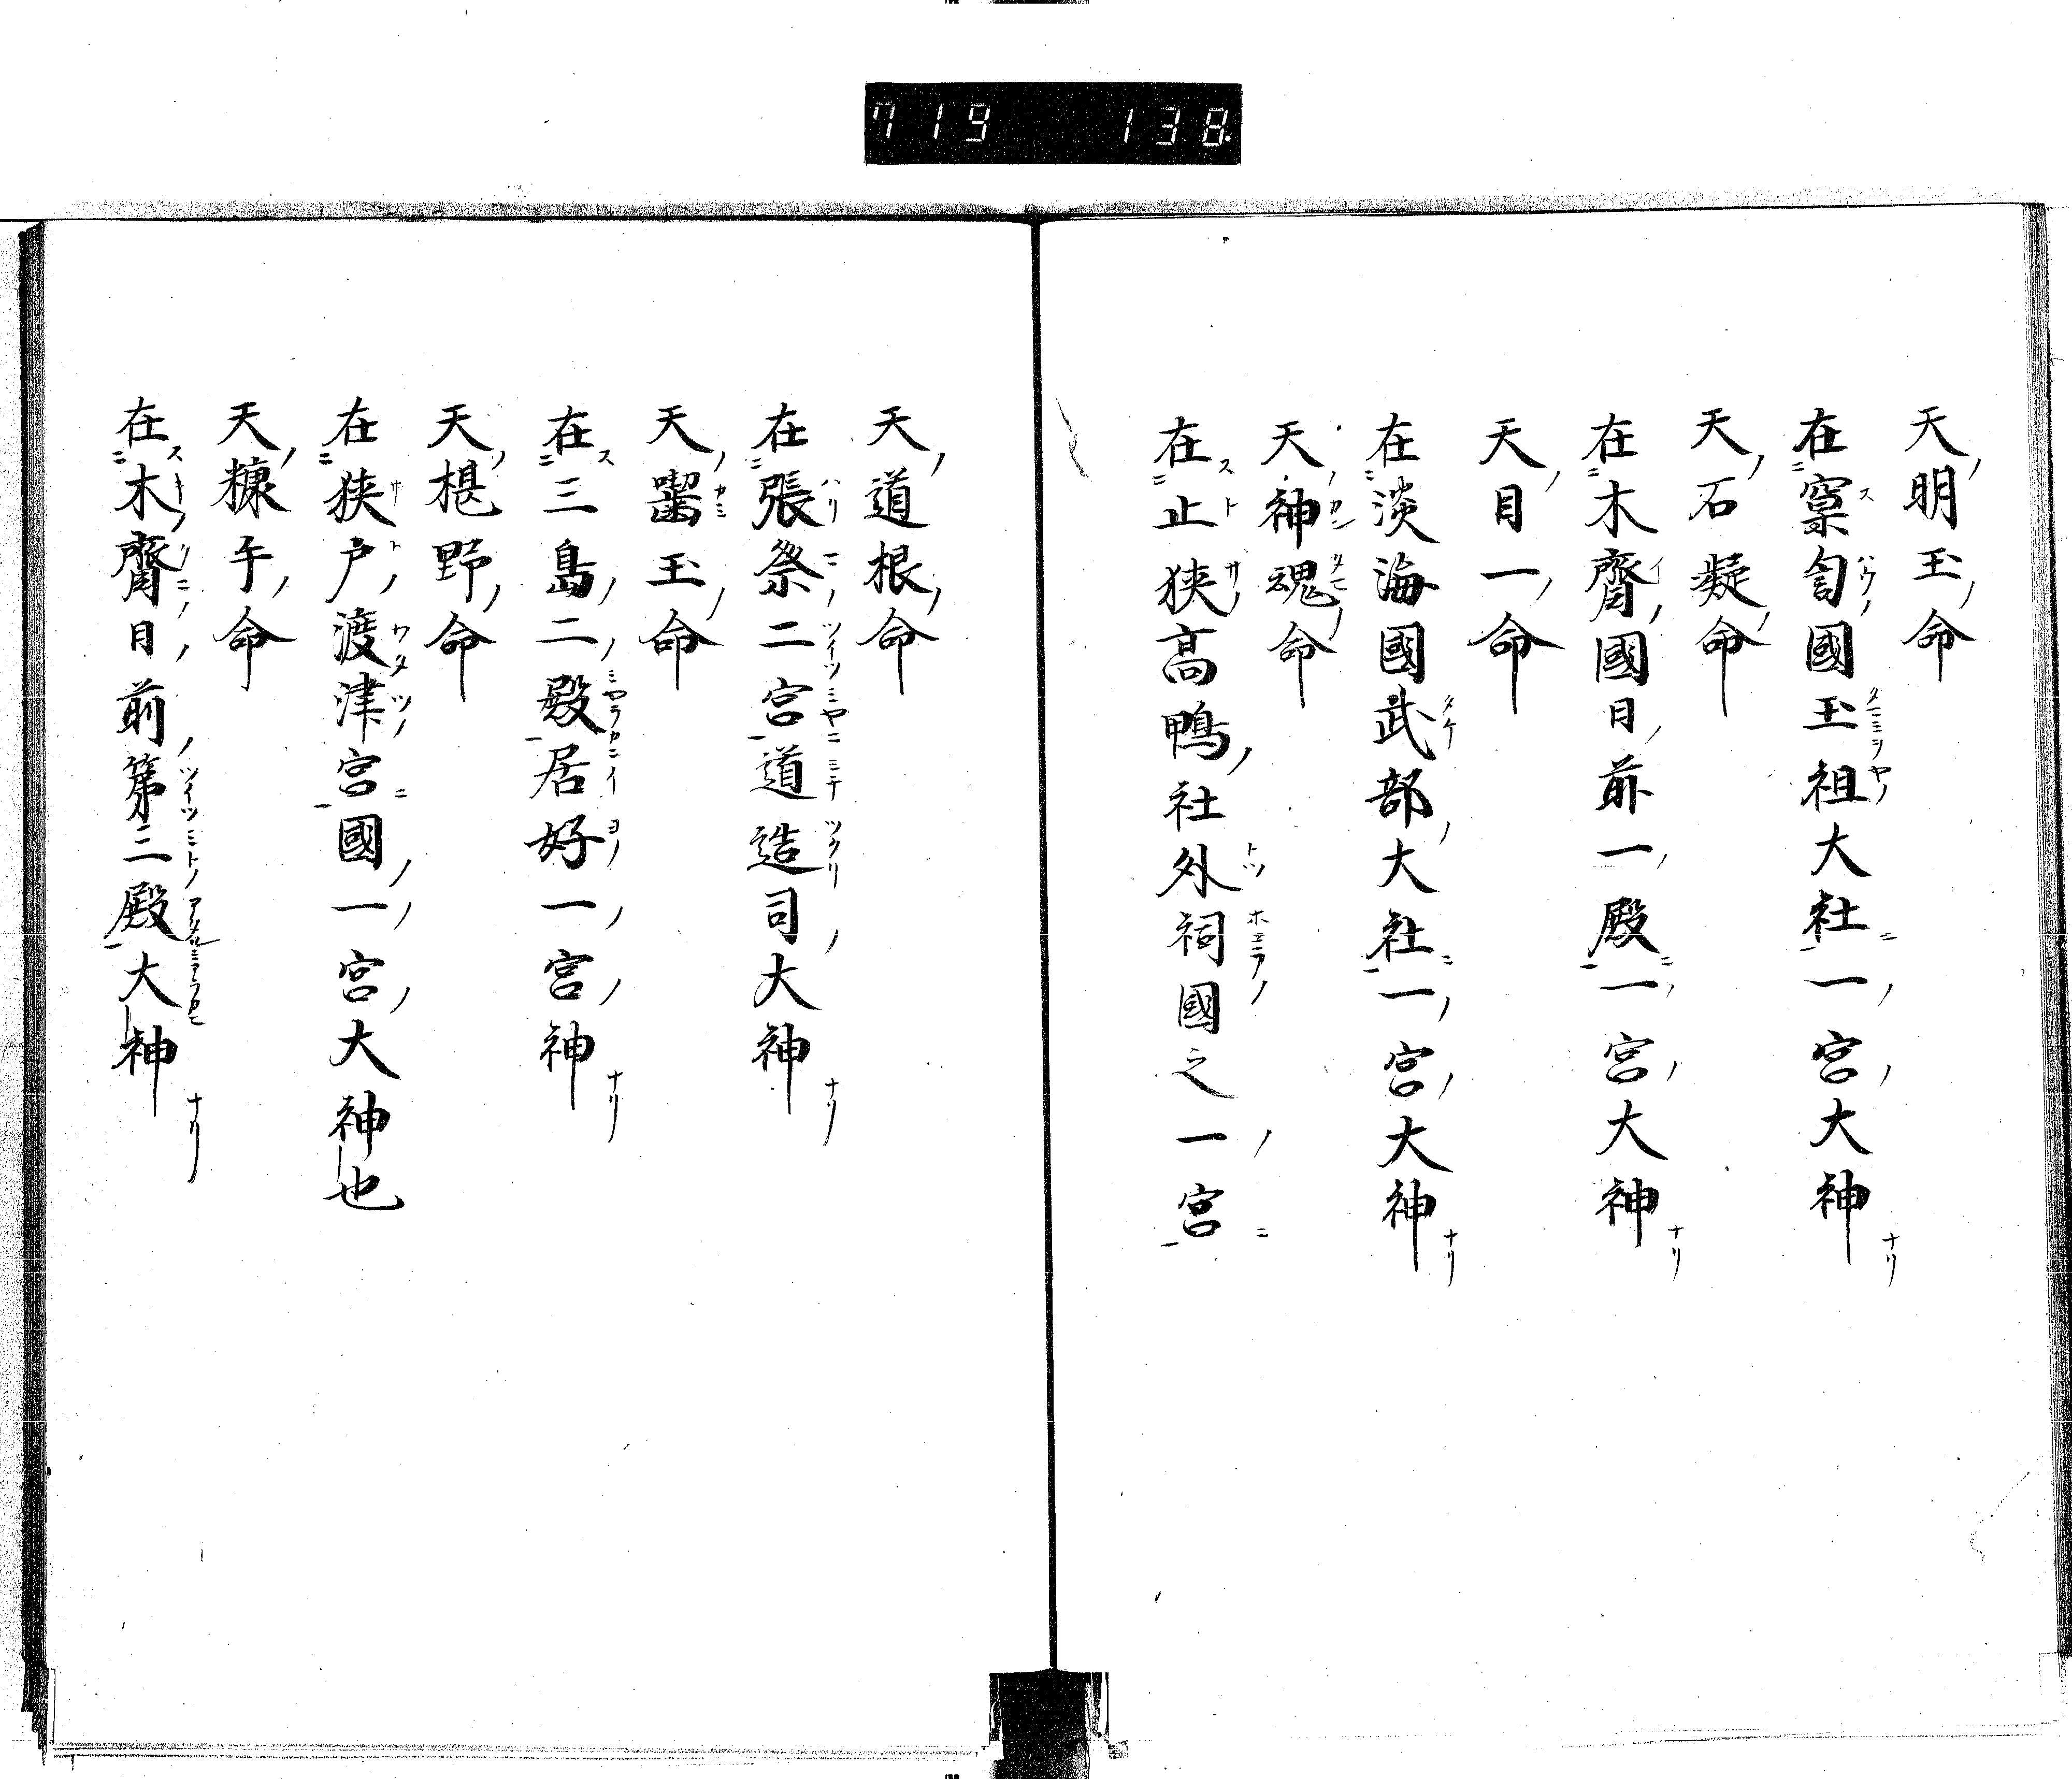 719 138
天明玉命
在窠匐國玉祖大社一宮大神
天石凝命
在木齋國日前一殿一宮大神
天目一命
在淡海國武部大社一宮大神
天神魂命
在止狹高鴨社外祠國之一宮
天道根命
在張祭二宮道造司大神
天嚙玉命
在三島二殿居好一宮神
天椹野命
在狹戸渡津宮國一宮大神也
天糠手命
在木齋日前第二殿大神